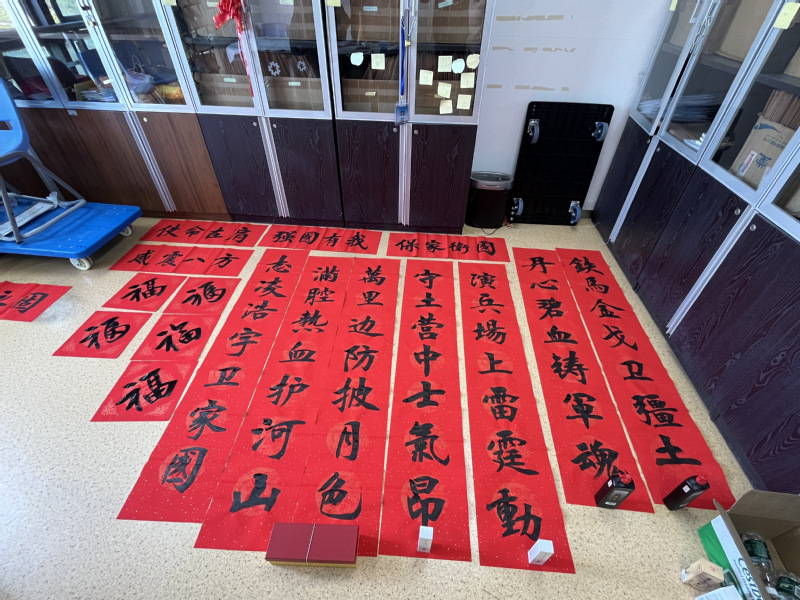 使命在肩
强国有我
保家衛國
威震八方
福
福
福
福
福
鉄馬金戈卫疆土
丹心碧血铸軍魂
演兵場上雷霆動
守土营中士氣昂
萬里边防披月色
满腔热血护河山
志凌浩宇卫家國
国